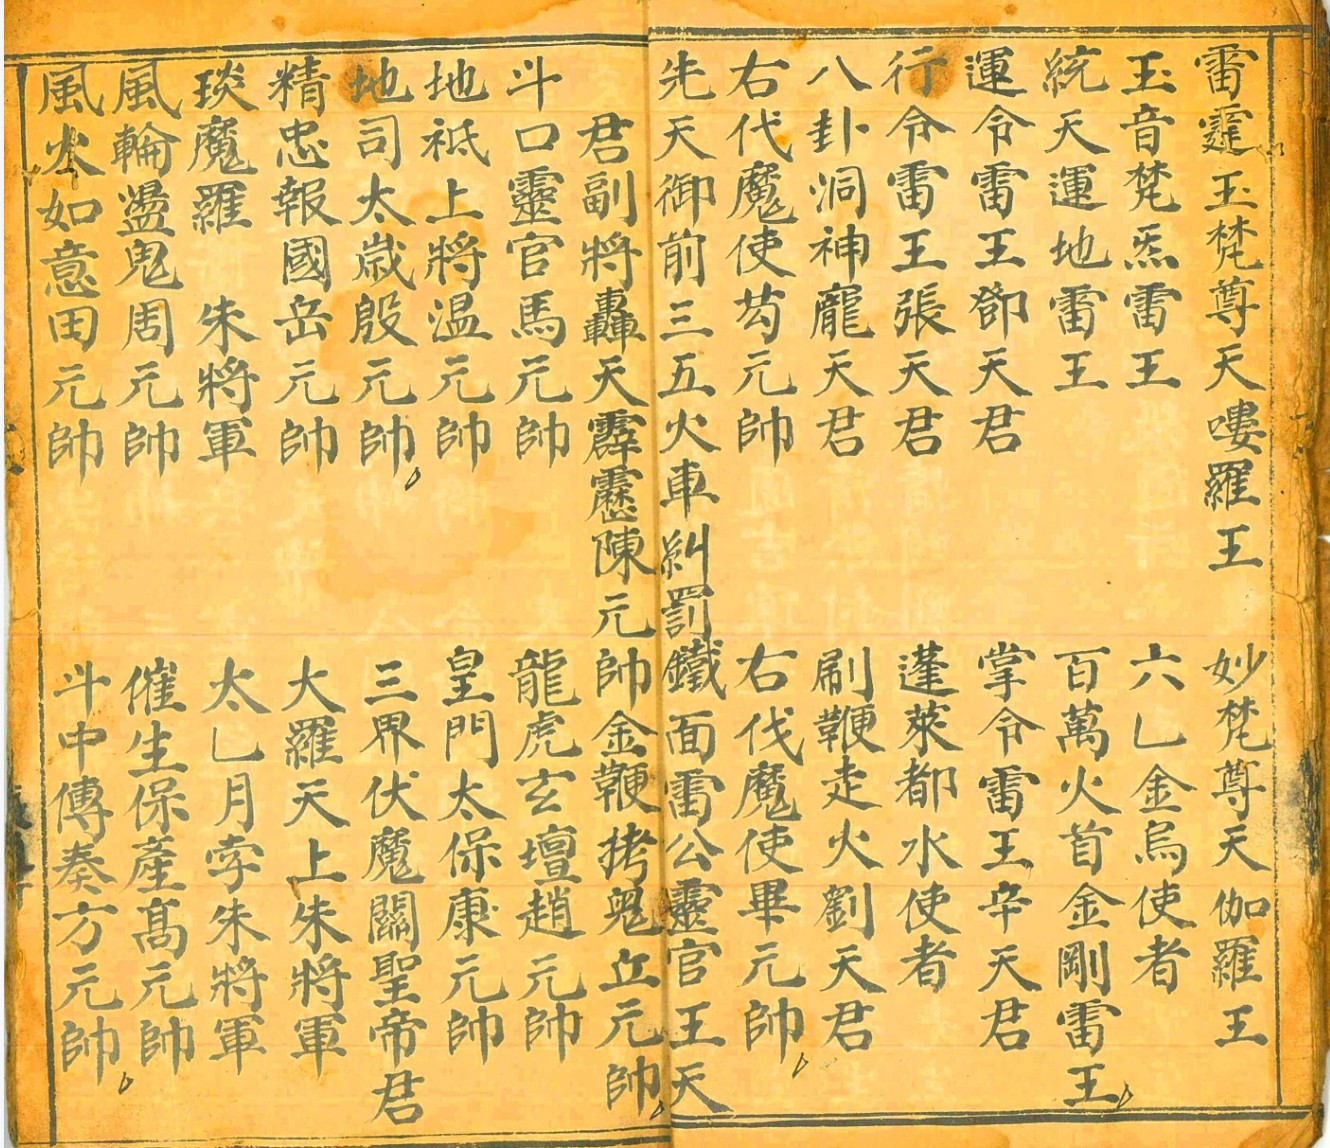 雷霆玉梵尊天嘍羅王 妙梵尊天伽羅王
玉音梵炁雷王 六乙金烏使者
統天運地雷王 百萬火首金剛雷王
運令雷王郤天君 掌令雷王辛天君
行令雷王張天君 蓬萊都水使者
八卦洞神龐天君 刷鞭走火劉天君
右代魔使芶元帥 右伐魔使畢元帥
先天御前三五火車糾罰鐵面雷公靈官王天
君副將轟天霹靂陳元帥金鞭拷鬼丘元帥
斗口靈官馬元帥 龍虎玄壇趙元帥
地祗上將温元帥 皇門太保康元帥
地司太歲殷元帥 三界伏魔關聖帝君
精忠報國岳元帥 大羅天上朱將軍
琰魔羅 朱將軍 太乙月孛朱將軍
風輪盪鬼周元帥 催生保產髙元帥
風火如意田元帥 斗中傳奏方元帥